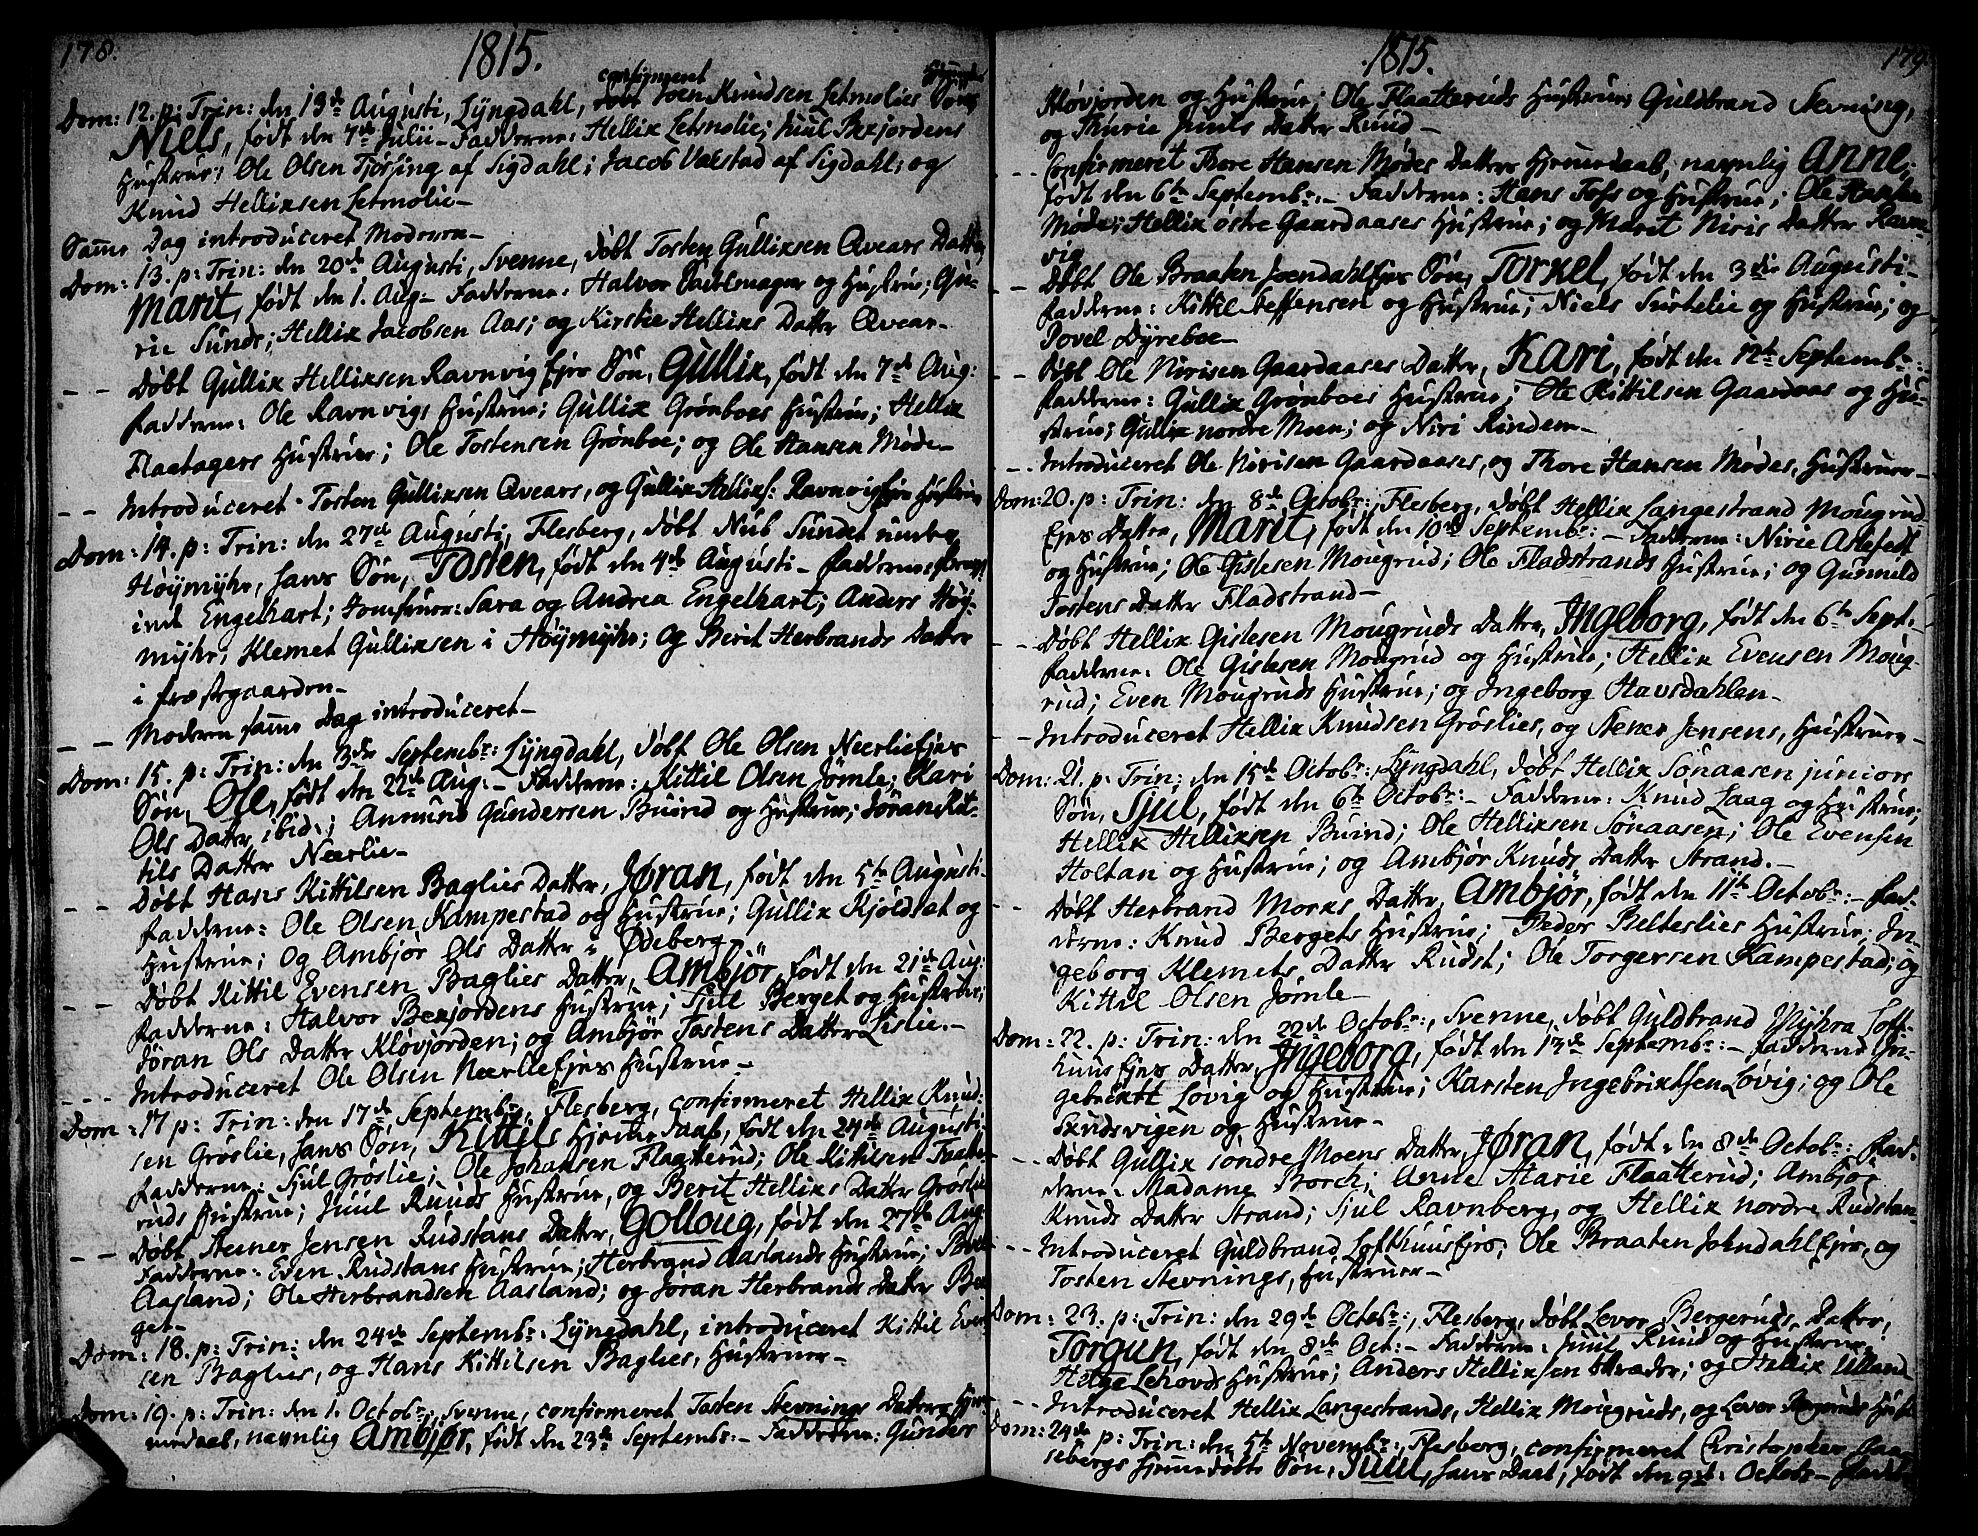 178.
1815.
confirmeret
Dom: 12. p: Trin: den 13de Augusti, Lÿngdahl, Joen Knudsen Letmolies Søn,
Niels, født den 7de Julii - Fadderne: Hellix Letmolie; Juul Bexjordens
Hustrue; Ole Olsen Tjorsing af Sigdahl; Jacob Vakstad af Sigdahl; og
Knud Hellixsen Letmolie -
Samme Dag introduceret Moderen -
Dom: 13. p: Trin: den 20de Augusti, Svenne, døbt Tosten Gullixsen Qvears Datter,
Marit, født den 1. Aug - Fadderne: Halvor og Hustrue; Gu-
rie Sunds; Hellix Jacobsen Aas; og Kirstie Hellixs Datter Qvear -
- - Døbt Gullix Hellixsen Ravnvig Ejes Søn, Gullix, født den 7de Aug:
Fadderne: Ole Ravnvigs Hustrue; Gullix Grønboes Hustrue; Hellix
Flaatagers Hustrue; Ole Tostensen Grønboe; og Ole Hansen Møde -
- - Introduceret Tosten Gullixsen Qvears, og Gullix Hellixs: Ravnvigejes Hustruer
Dom: 14. p: Trin: den 27de Augusti, Flesberg, døbt Nub Sundet under
Høÿmÿhr, hans Søn, Tosten, født den 4de Augusti - Fadderne:
inde Engelhart; Jomfruer: Sara og Andrea Engelhart; Anders Høÿ-
mÿhr; Klemet Gullixsen i Høÿmÿhr; og Berit Herbrands Datter
i Præstegaarden -
- - Moderen samme Dag introduceret -
Dom: 15. p: Trin: den 3die Septembr: Lÿngdahl, døbt Ole Olsen Neerliejes
Søn, Ole, født den 22de Aug: - Fadderne: Kittil Olsen Jømle; Kari
Ols Datter ibid:; Anmund Gundersen Buind og Hustrue; Jøran Kit-
tils Datter Neerlie -
- - Døbt Hans Kittilsen Baglies Datter, Jøran, født den 5te Augusti -
Fadderne: Ole Olsen Kampestad og Hustrue; Gullix Kjøldsæt og
Hustrue; og Ambjør Ols Datter i Ødeberg -
- - Døbt Kittil Evensen Baglies Datter, Ambjør, født den 21de Aug:
Fadderne: Halvor Bexjordens Hustrue; Sjul Berget og Hustrue;
Jøran Ols Datter Kløvjorden; og Ambjør Tostens Datter Lislie. -
- - - Introduceret Ole Olsen Neerlieejes Hustrue -
Dom: 17 p: Trin: den 17de Septembr, Flesberg, confirmeret Hellix Knud-
sen Grøslie, hans Søn, Kittils Hjemedaab, født den 24de Augusti -
Fadderne: Sjul Grøslie; Ole Johansen Flaatterud; Ole Kittilsen Flaatte-
ruds Hustrue; Juul Ruuds Hustrue, og Berit Hellixs Datter Grøslie
- - Døbt Stener Jensen Rudstans Datter, Golloug, født den 27de Aug
Fadderne: Even Rudstans Hustrue; Herbrand Aaslands Hustrue;
Aasland; Ole Herbrandsen Aasland; og Jøran Herbrands Datter Ber-
get -
Dom: 18. p: Trin: den 24de Septembr: Lÿngdahl, introduceret Kittil Even-
sen Baglies, og Hans Kittilsen Baglies, Hustruer -
Dom: 19. p: Trin: den 1. Octobr:, Svenne, confirmeret Tosten Stevnings Datters Hjem-
medaab, navnlig Ambjør, født den 23de Septembr: - Fadderne: Gunder
1815.
179
Kløvjorden og Hustrue; Ole Flaatteruds Hustrue; Guldbrand Stevning,
og Thurie Juuls Datter Ruud -
- - Confirmeret Thore Hansen Mødes Datters Hjemmedaab, navnlig Anne;
født den 6te Septembr: - Fadderne: Hans Tofs og Hustrue; Ole Hansen
Møde; Hellix østre Gaardaases Hustrue; og Marit Niris Datter Ravn-
vig
- - Døbt Ole Braaten Joendahlejes Søn, Torkel, født den 3die Augusti -
Fadderne: Kittil Steffensen og Hustrue; Niels Surtelie og Hustrue; og
Povel Dÿreboe -
- - Døbt Ole Nirisen Gaardaases Datter, Kari, født den 12te Septembr:
Fadderne: Gullix Grønboes Hustrue; Ole Kittilsen Gaardaas og Hu-
strue; Gullix nordre Moen; og Niri Rindem -
- - Introduceret Ole Nirisen Gaardaases, og Thore Hansen Mødes, Hustruer -
Dom: 20. p: Trin: den 8de Octobr:, Flesberg, døbt Hellix Langestrand Mougrud
Ejes Datter, Marit, født den 10de Septembr: - Fadderne: Nirie Aslefedt
og Hustrue; Ole Gislesen Mougrud; Ole Fladstrands Hustrue; og Gunnild
Tostens Datter Fladstrand -
- - Døbt Hellix Gislesen Mougruds Datter, Ingeborg, født den 6te Sept: -
Fadderne: Ole Gislesen Mougrud og Hustrue; Hellix Evensen Moug-
rud; Even Mougruds Hustrue; og Ingeborg Havsdahlen -
- - Introduceret Hellix Knudsen Grøslies, og Stener Jensens, Hustruer -
Dom: 21. p: Trin: den 15de Octobr:, Lÿngdahl, døbt Hellix Sønaasen juniors
Søn, Sjul, født den 6te Octobr: - Fadderne: Knud Laag og Hustrue;
Hellix Hellixsen Buind; Ole Hellixsen Sønaasen; Ole Evensen
Holtan og Hustrue; og Ambjør Knuds Datter Strand. -
- - Døbt Herbrand Morks Datter, Ambjør, født den 11te Octobr: - Fad-
derne: Knud Bergets Hustrue; Peder Belteslies Hustrue; In-
geborg Klemets Datter Rudst; Ole Torgersen Kampestad; og
Kittil Olsen Jømle -
Dom: 22. p: Trin: den 22de Octobr:, Svenne, døbt Guldbrand Mÿhra Loft-
huusejes Datter, Ingeborg, født den 13de Septembr: - Fadderne: In-
gebrikt Løvig og Hustrue; Karsten Ingebriktsen Løvig; og Ole
Skudsvigen og Hustrue -
- - Døbt Gullix søndre Moens Datter, Jøran, født den 8de Octobr: Fad-
derne: Madame Borch; Anne Marie Flaatterud; Ambjør
Knuds Datter Strand; Sjul Ravnberg, og Hellix nordre Rudstan -
- - Introduceret Guldbrand Lofthuusejes, Ole Braaten Johndahlejes, og
Tosten Stevnings, Hustruer -
Dom: 23. p: Trin: den 29de Octobr:, Flesberg, døbt Levor Bergeruds Datter,
Torgun, født den 8de Oct: - Fadderne: Juul Ruud og Hustrue,
Helge Lehovds Hustrue; Anders Hellixsen Skræder; og Hellix Ulland
- - Introduceret Hellix Langestrands, Hellix Mougruds, og Levor Bergeruds Hust:
Dom: 24de p: Trin: den 5te Novembr:, Flesberg, confirmeret Christopher Aas-
sebergs Hjemmedøbte Søn, Juul, hans Daab, født den 9de Octobr - Fadder